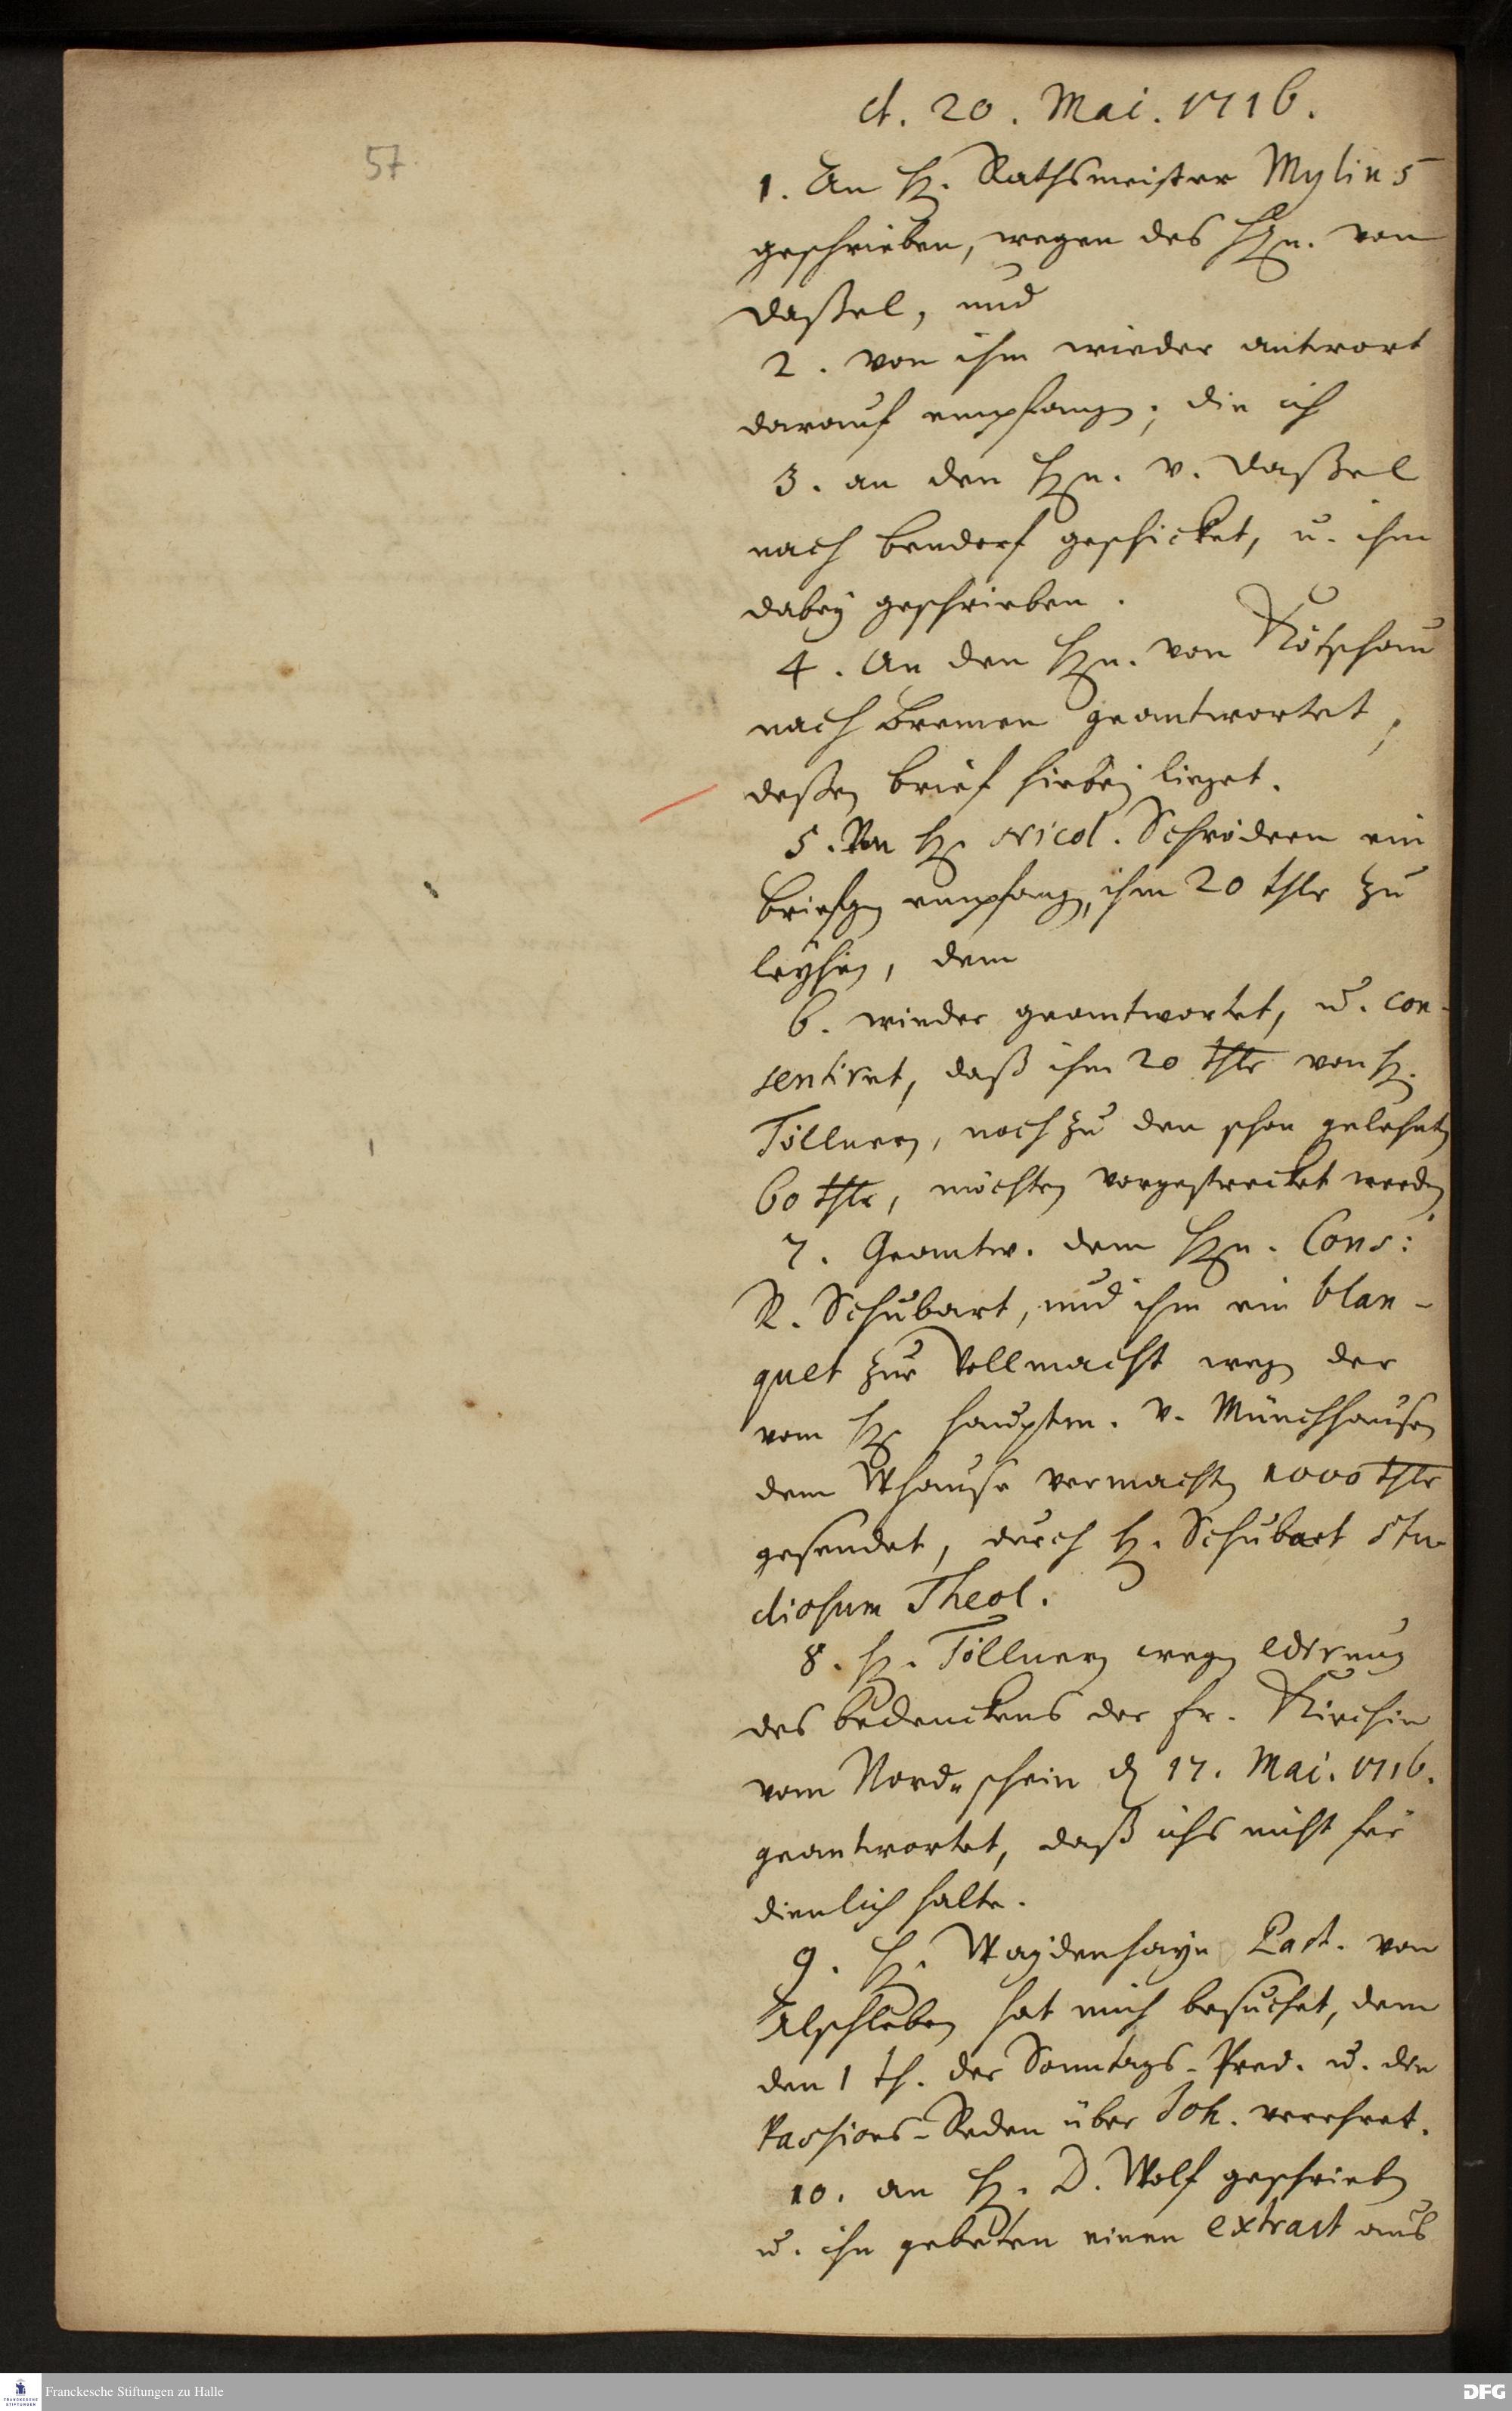 57
d. 20. Mai. 1716.
1. An H. Rathsmeister Mylius
geschrieben, wegen des Hrn. von
Daßel, und
2. von ihm wieder antwort
darauf empfangen; die ich
3. an den Hrn. v. Daßel
nach Bendorf geschicket, u. ihm
dabey geschrieben.
4. An den Hrn. von Kötschau
nach Bremen geantwortet,
deßen brief hiebey lieget.
5. Von H. Nicol. Schrödern ein
briefgen empfangen, ihm 20 thlr zu
leyhen, dem
6. wieder geantwortet, u. con-
sentiret, daß ihm 20 thlr von H.
Töllnern, noch zu den schon gelehnten
60 thlr, möchten vorgestrecket werden.
7. Geantw. dem Hrn. Cons:
R. Schubart, und ihm ein blan-
quet zur Vollmacht wegen der
vom H. Hauptm. v. Münchhausen
dem Whause vermachten 1000 thlr
gesendet, durch H. Schubart Stu-
diosum Theol.
8. H. Töllnern wegen edirung
des bedenckens der Fr. Kirchin
vom Nord-schein d. 17. Mai. 1716.
geantwortet, daß ichs nicht für
dienlich halte.
9. H. Waydenhayn Past. von
Alschleben hat mich besuchet, dem
den 1 th. der Sonntags-Pred. u. die
Passions-Reden über Joh. verehret.
10. an H. D. Wolf geschrieben
u. ihn gebeten einen extract aus
Franckesche Stiftungen zu Halle
DFG